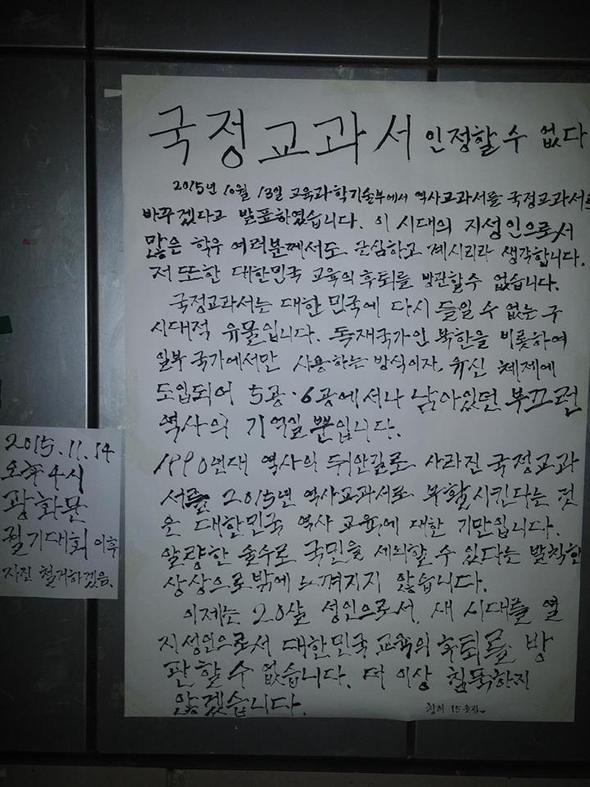 국정교과서 인정할 수 없다
2015년 10월 13일 교육과학기술부에서 역사교과서를 국정교과서로
바꾸겠다고 발표하였습니다. 이 시대의 지성인으로서
많은 학우 여러분께서도 관심하고 계시리라 생각합니다.
저 또한 대한민국 교육의 후퇴를 방관할 수 없습니다.
국정교과서는 대한민국에 다시 들일 수 없는 구
시대적 유물입니다. 독재국가인 북한을 비롯하여
일부 국가에서만 사용하는 방식이자, 유신 체제에
도입되어 5공·6공에서나 남아있던 부끄런
역사의 기억일 뿐입니다.
1990년대 역사의 뒤안길로 사라진 국정교과
서를 2015년 역사교과서로 부활시킨다는 것
은 대한민국 역사 교육에 대한 기만입니다.
알량한 술수로 국민을 세뇌할 수 있다는 발칙한
상상으로밖에 느껴지지 않습니다.
이제는 20살 성인으로서, 새 시대를 열
지성인으로서 대한민국 교육의 후퇴를 방
관할 수 없습니다. 더 이상 침묵하지
않겠습니다.
2015.11.14
오후 4시
광화문
궐기대회 이후
자진 철거하겠음.